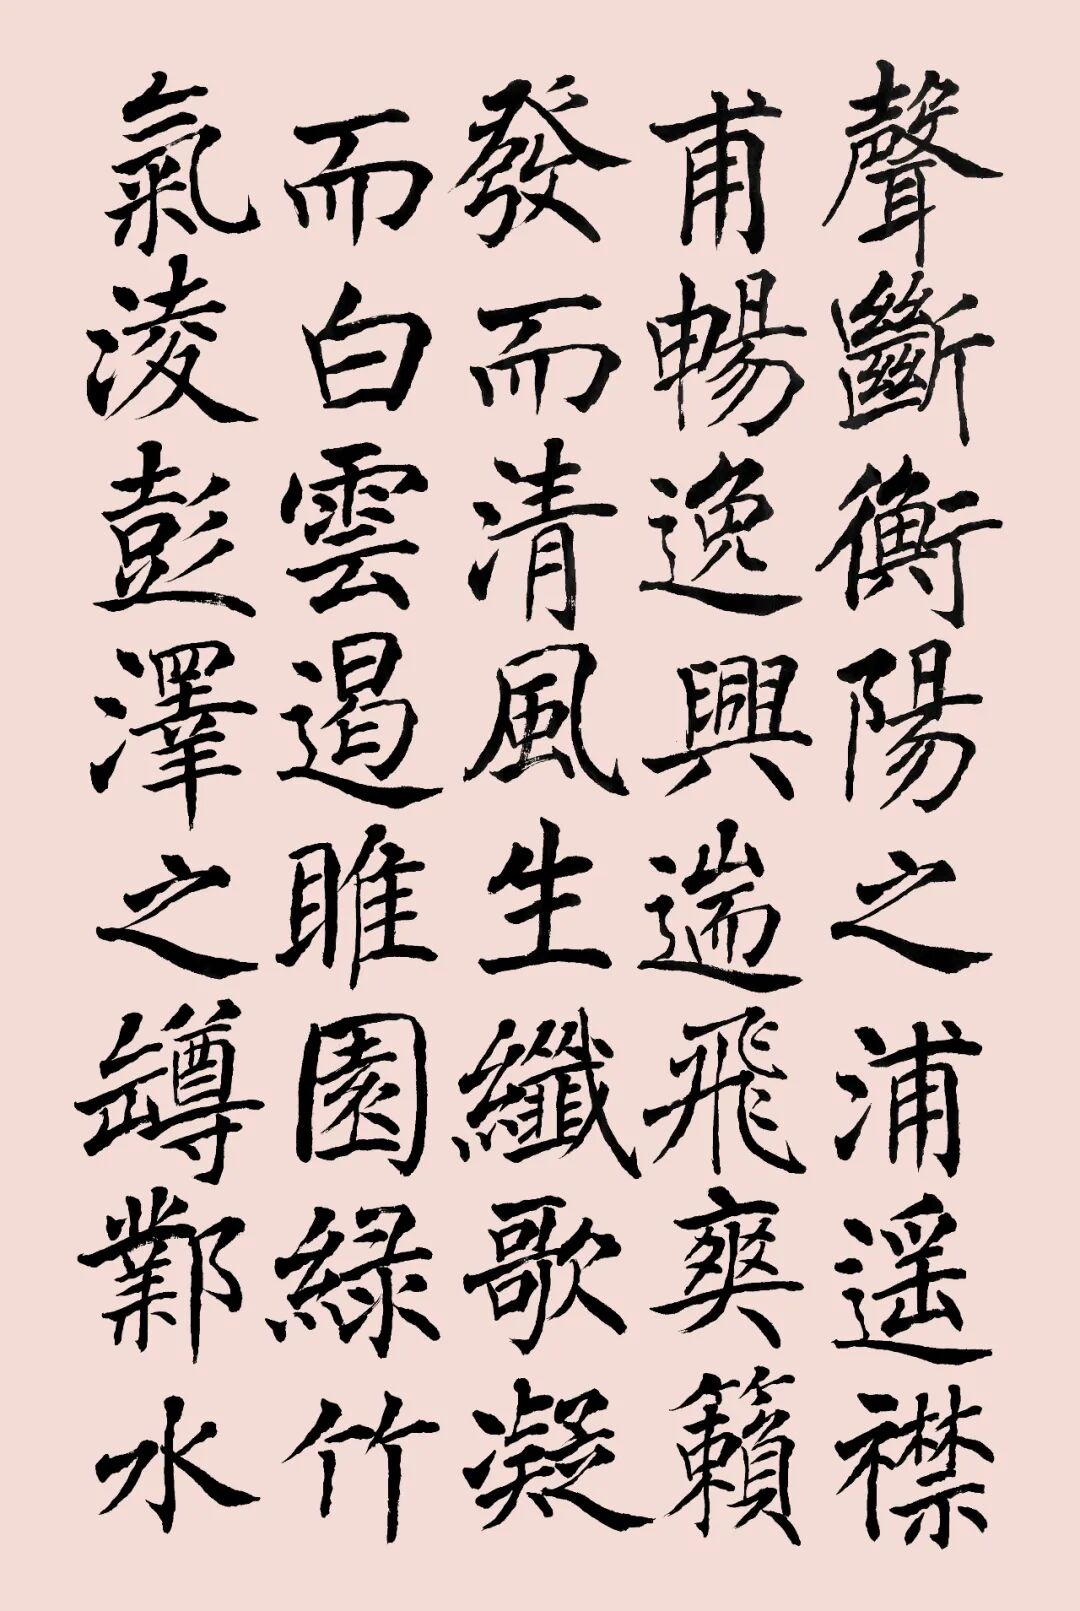 聲斷衡陽之浦遥襟
甫暢逸興遄飛爽籟
發而清風生纖歌凝
而白雲遏睢園緑竹
氣淩彭澤之罇鄴水